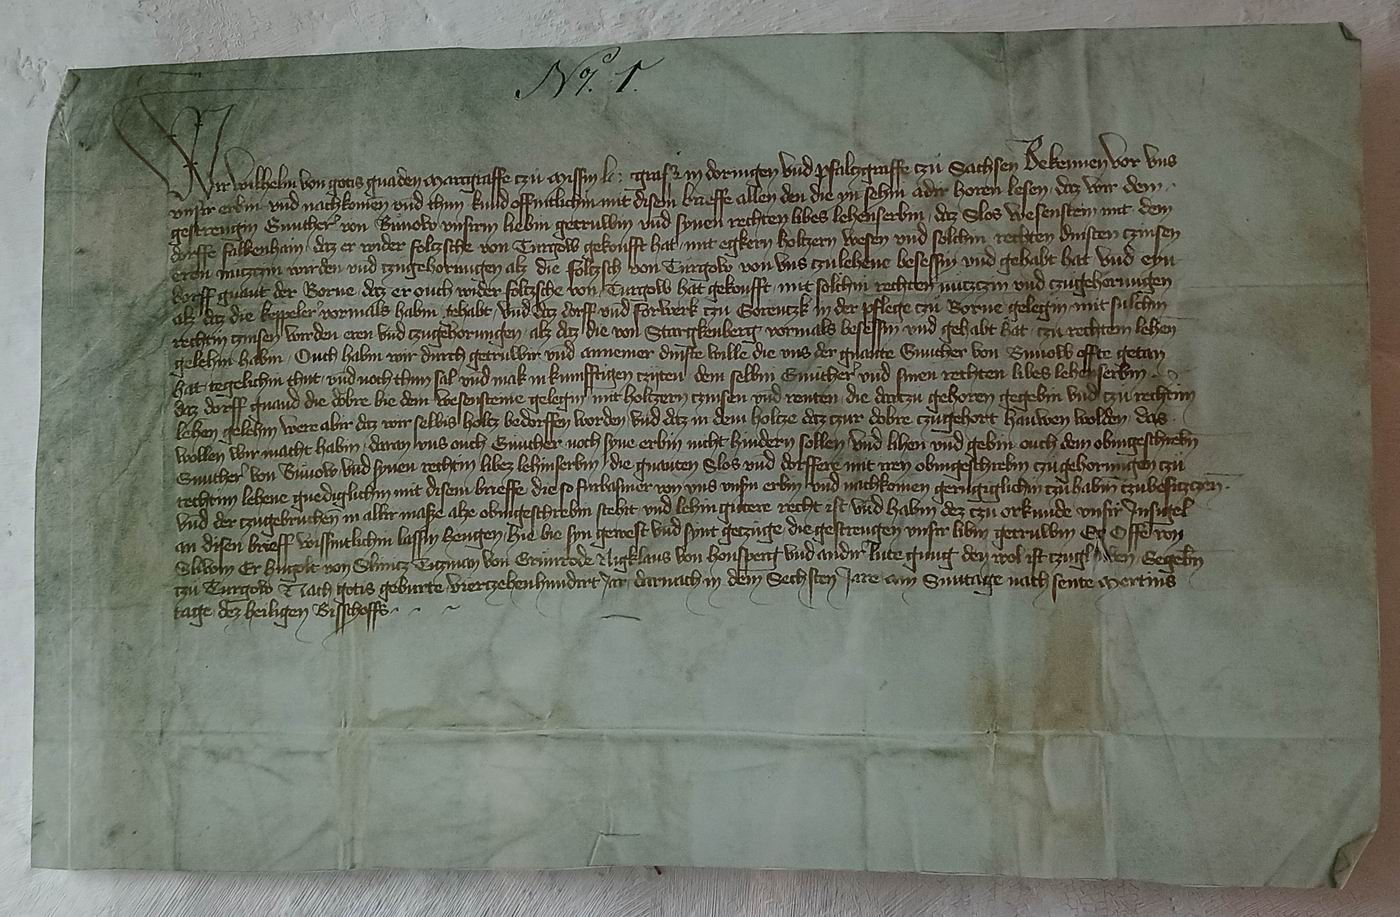 No. 1.
Wir wilhelm von gotis gnaden Marcgraffe czu Missin in doringen vnd pfalczgraffe czu Sachsen Bekennen vor vns
vnsir erbin vnd nachkomen vnd thun kund offintlichin mit disem brieffe allen den die yn sehin adir horen lesen daz wir dem
gestrengin Gunther von Bunow vnsirm liebin getruwin vnd synen rechten libes lehenserbin daz Slos wesenstein mit dem
dorffe falkenhain daz er wider foltzsche von Turgow gekoufft hat mit egkern holtzern wesen vnd solchin rechten dinsten czinsen
eren nutzcin wirden vnd czugehorungen alz die foltzsch von Turgow von vns czu lehene besessin vnd gehabt hat vnd eyn
dorff gnant der Borne daz er ouch wider foltzsche von Turgow hat gekoufft mit solchin rechten nutzcin vnd czugehorungen
alz daz die keppeler vormals habin gehabt vnd daz dorff vnd forwerk czu Gorentzk in der pflege czu Borne gelegin mit sulchin
rechtin czinsen wirden eren vnd czugehorungen alz daz die von Stargkenberg vormals besessin vnd gehabt hat czu rechtem lehen
gelehin habin Ouch habin wir durch getruwir vnd annemer dinste wille die vns der gnante Gunther von Bunow offte getan
hat tegelichin thut vnd noch thun sal vnd mak in kunfftigen cziten dem selbin Gunther vnd sinen rechten libes lehenserbin
daz dorff gnand die dobre bie dem wesensteine gelegin mit holtzern czinsen vnd renten die dartzu gehoren gegebin vnd czu rechtin
lehen gelehin were abir daz wir selbis holtz bedorffen worden vnd daz in dem holtze daz czur dobre czugehort hauwen wolden das
wollen wir macht habin daran vns ouch Gunther noch syne erbin nicht hindern sollen vnd lihen vnd gebin ouch dem obingeschrebin
Gunther von Bunow vnd synen rechtin libez lehinserbin die gnanten Slos vnd dorffere mit iren obingeschrebin czugehorungen czu
rechtin lehene gnediglichin mit disem brieffe die so furbasmer von vns vnsin erbin vnd nachkomen gerugiglichin czu habin czubesitzcen
vnd der czugebruchen in allir masze alze obingeschrebin stehit vnd lehin gutere recht ist vnd habin dez czu orkunde vnsir Insigel
an disen brieff wissintlichin lassin hengen hie bie syn gewest vnd synt getzuge die gestrengen vnsir libin getruwin Er Offe von
Sliwin Er hugolt von Slinitz Titzman von Grunrode Nigklaus von honsperg vnd andir lute gnug den wol ist czugl wen Gegebin
czu Turgow Nach gotis geburte vierczehenhundirt Jar darnach in dem Sechsten Jare am Suntage nach sente Mertins
tage dez heiligen Bisschoffs